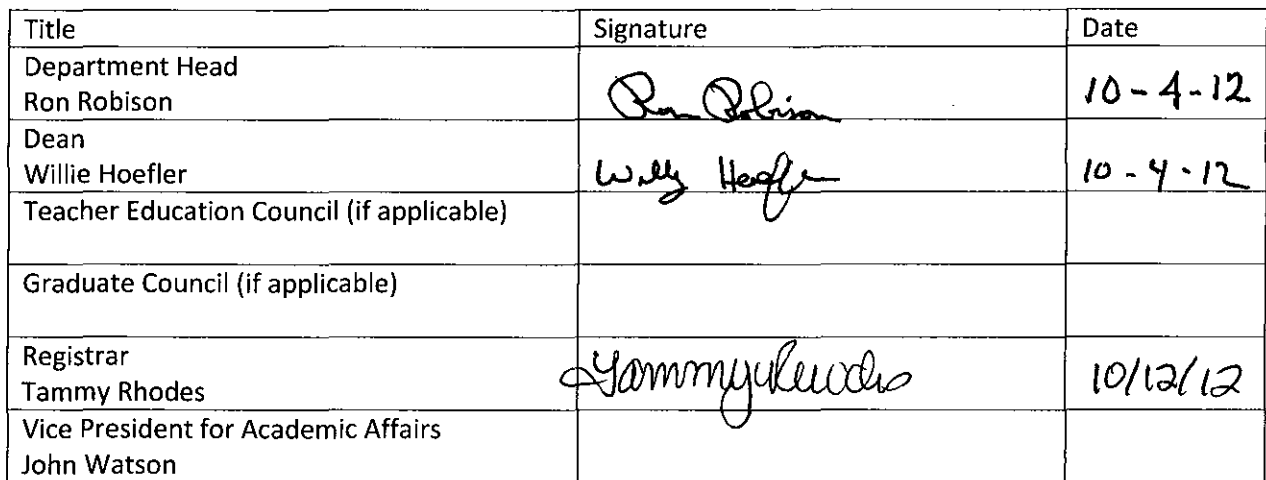 Title Signature Date
Department Head
Ron Robison Ron Robison 10-4-12
Dean
Willie Hoefler Willy Hoefler 10-4-12
Teacher Education Council (if applicable)
Graduate Council (if applicable)
Registrar
Tammy Rhodes Tammy Rhodes 10/12/12
Vice President for Academic Affairs
John Watson